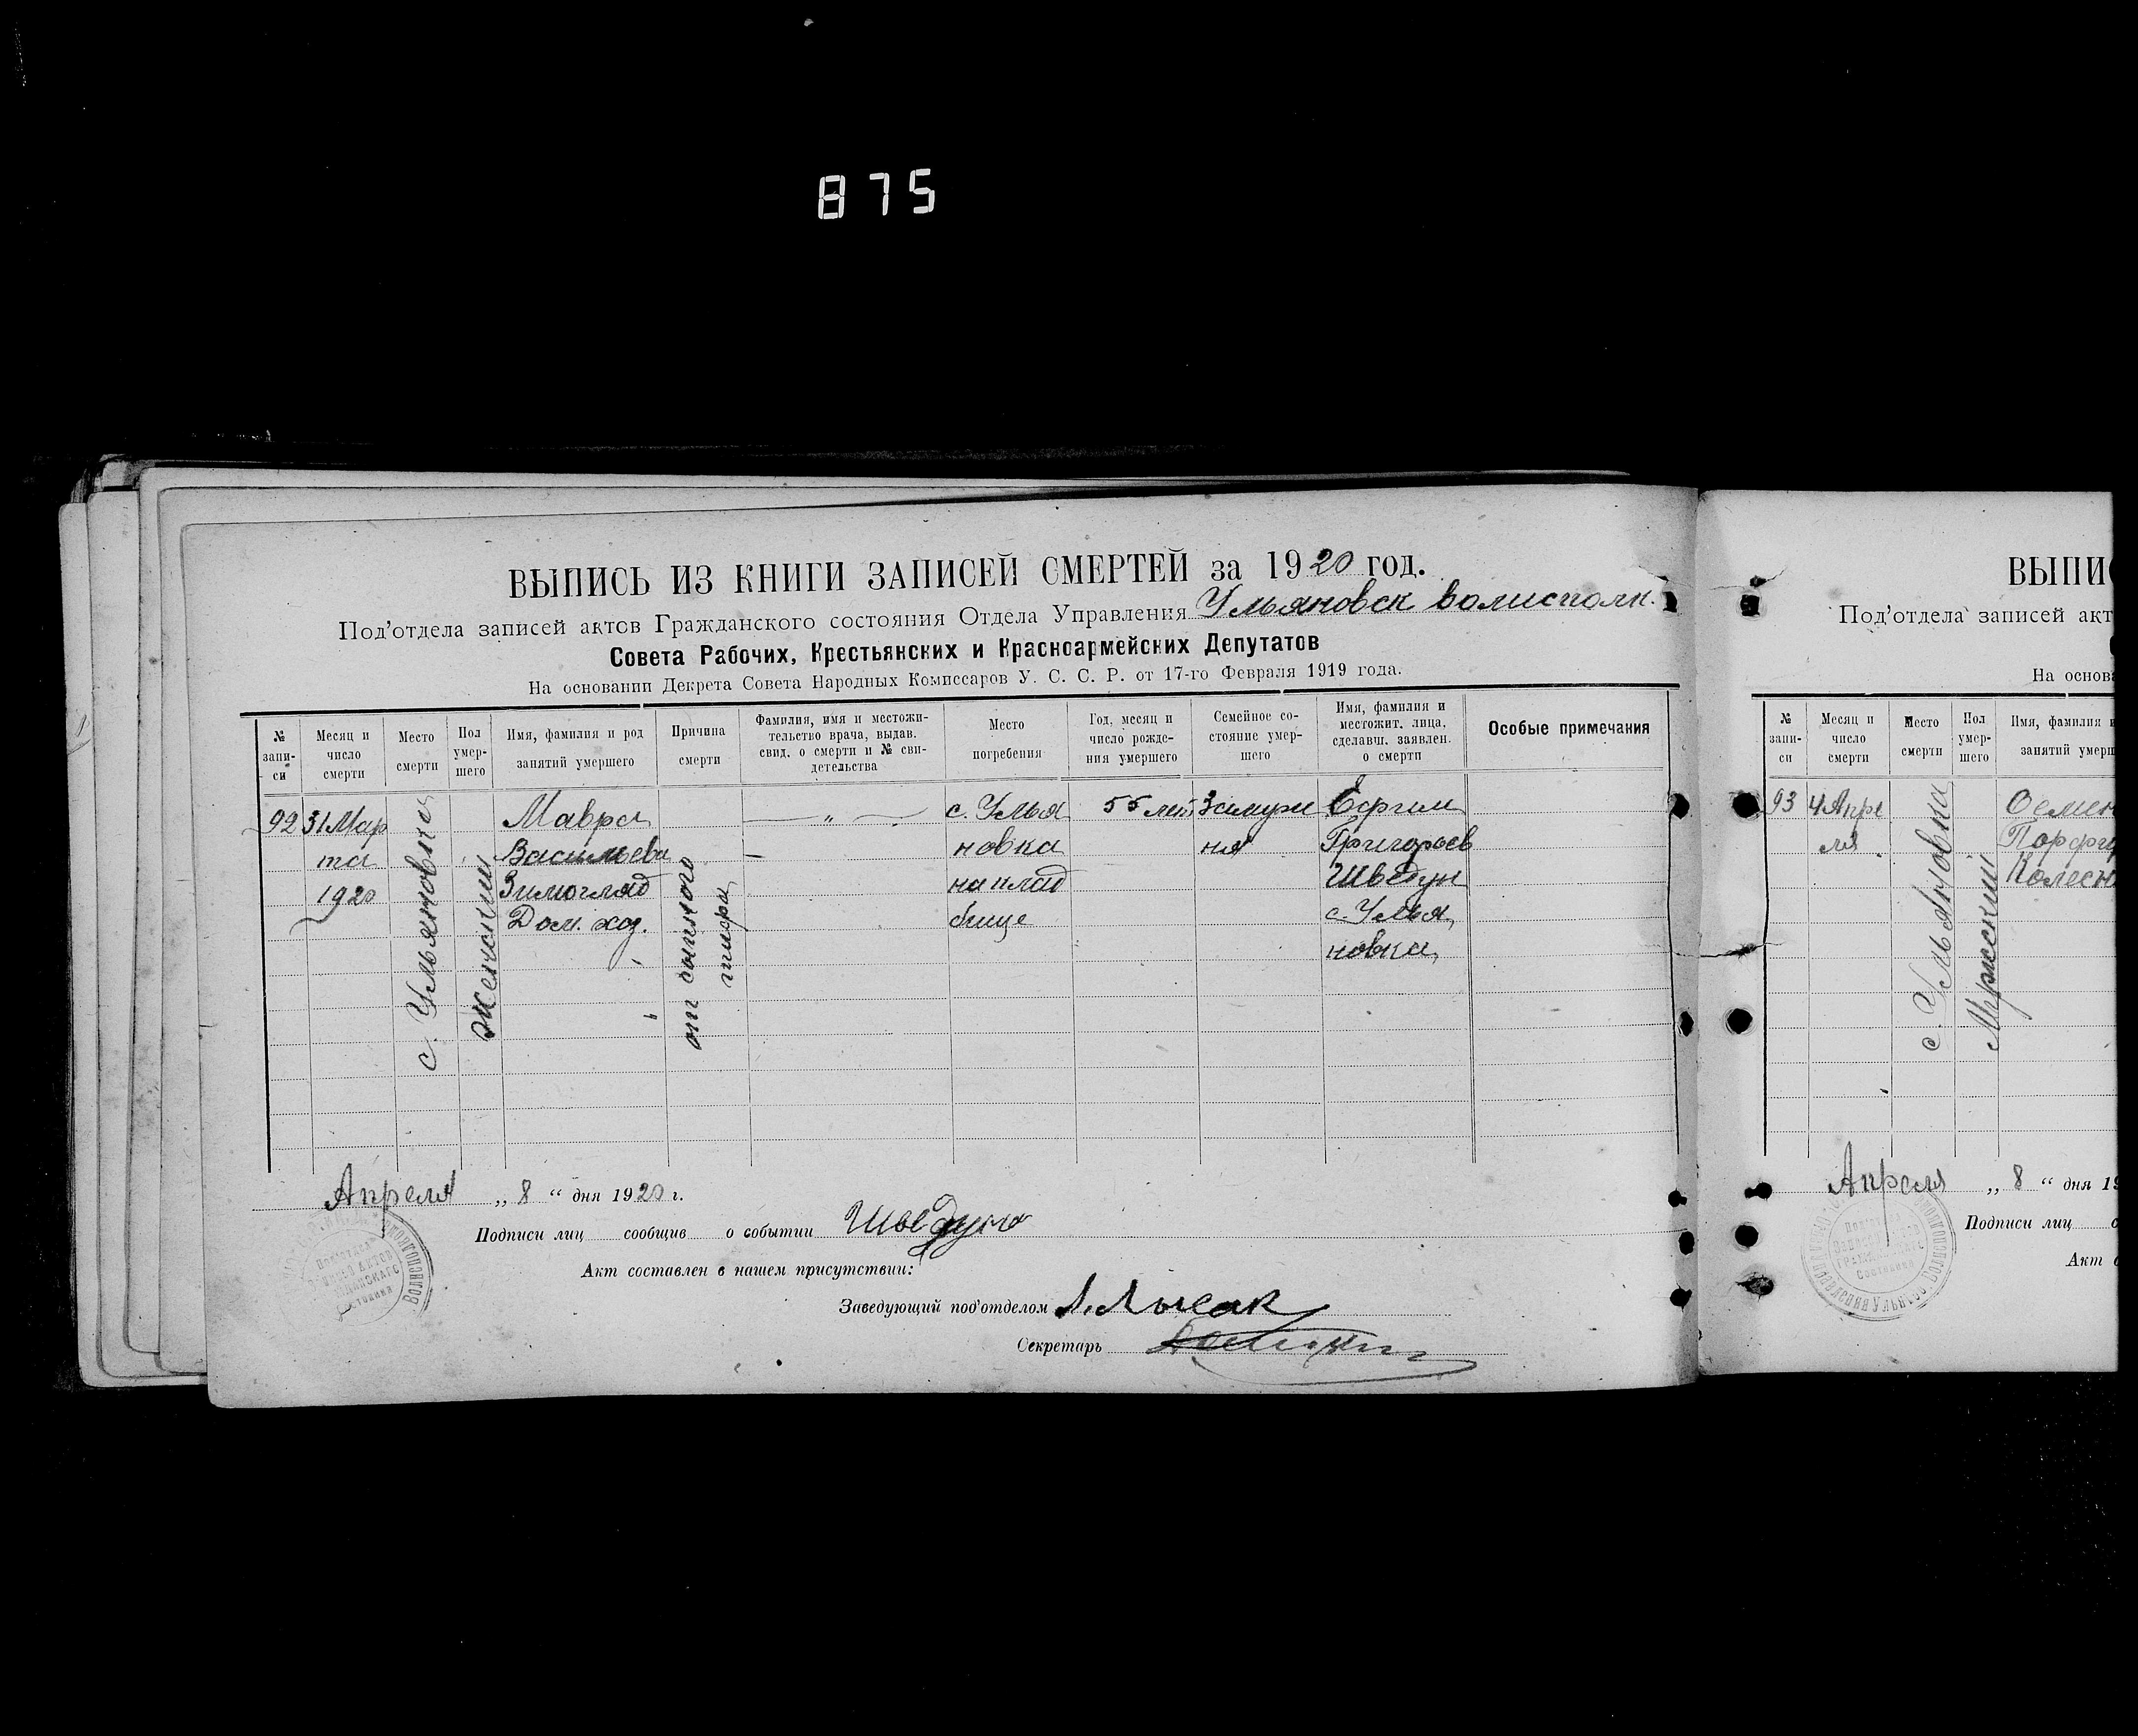 875
ВЫПИСЬ ИЗ КНИГИ ЗАПИСЕЙ СМЕРТЕЙ за 1920 год.
Под'отдела записей актов Гражданского состояния Отдела Управления Ульяновск волисполк.
Совета Рабочих, Крестьянских и Красноармейских Депутатов
На основании Декрета Совета Народных Комиссаров У. С. С. Р. от 17-го Февраля 1919 года.
№ запи-
си
Месяц и
число
смерти
Место
смерти
Пол
умер-
шего
Имя, фамилия и род
занятий умершего
Причина
смерти
Фамилия, имя и местожи-
тельство врача, выдав.
свид. о смерти и № сви-
детельства
Место
погребения
Год, месяц и
число рожде-
ния умершего
Семейное со-
стояние умер-
шего
Имя, фамилия и
местожит. лица,
сделавш. заявлен.
о смерти
Особые примечания
92
31 Мар
та
1920
с. Ульяновка
женский
Мавра
Васильева
Зимогляд
Дом. хоз.
от сыпного
тифа
— „ —
с. Улья
новка
на клад
бище
55 лет
Замужн
няя
Ефим
Григорьев
Шведун
с. Улья
новка
Апреля „ 8 “ дня 1920 г.
Подписи лиц сообщив о событии Шведун
Акт составлен в нашем присутствии:
Заведующий под'отделом Лысак
Секретарь
Волисполкома
ВЫПИС
Под'отдела записей акт
На основа
№
запи-
си
Месяц и
число
смерти
Место
смерти
Пол
умер-
шего
Имя, фамилия и
занятий умерш
93
4 Апре
ля
с. Ульяновка
Мужский
Семен
Порфир
Колесн
Апреля „ 8 “ дня 19
Подписи лиц с
Акт с